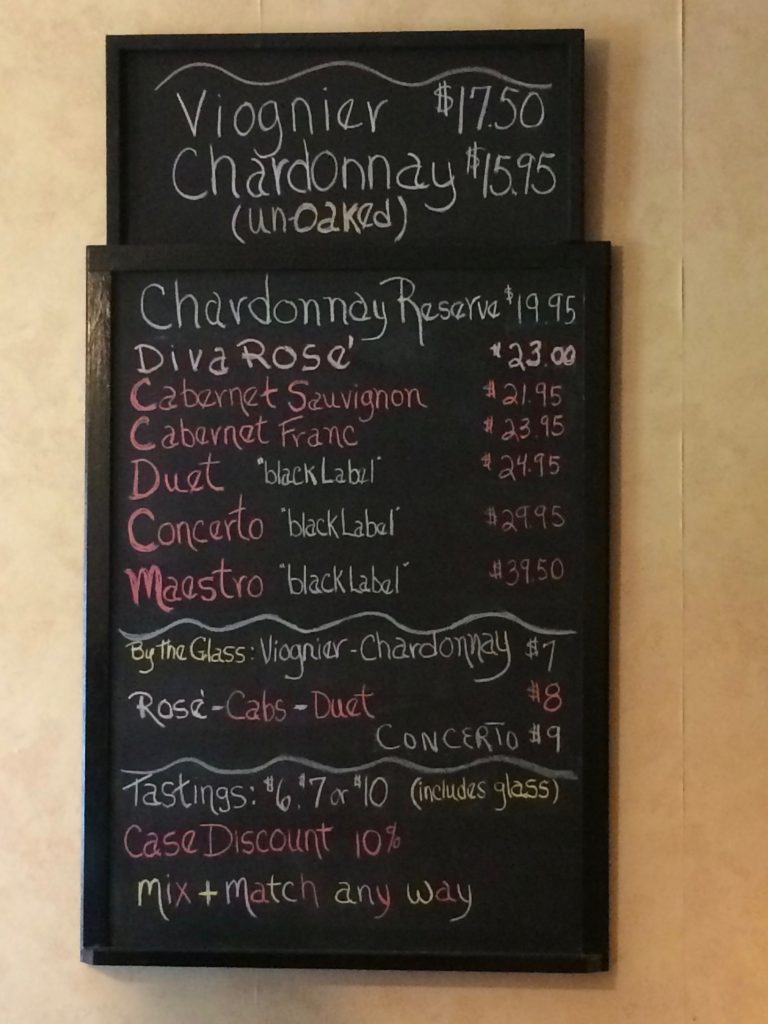 Viognier $17.50
Chardonnay $15.95
(un-oaked)
Chardonnay Reserve $19.95
Diva Rosé $23.00
Cabernet Sauvignon $21.95
Cabernet Franc $23.95
Duet "black Label" $24.95
Concerto "black Label" $29.95
Maestro "black Label" $39.50
By the Glass: Viognier - Chardonnay $7
Rosé - Cabs - Duet $8
CONCERTO $9
Tastings: $6, $7 or $10 (includes glass)
Case Discount 10%
Mix + Match any way